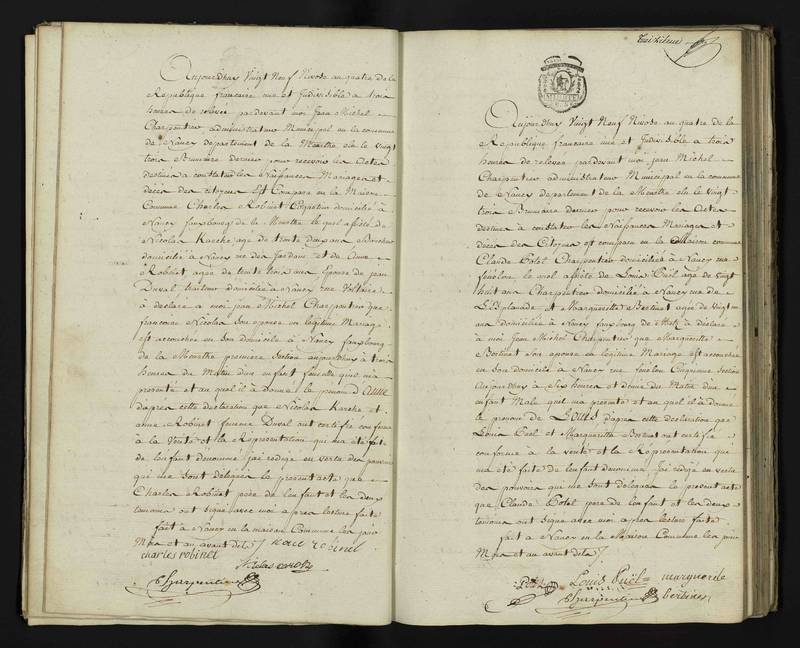 Aujourdhuy Vingt Neuf Nivose an quatre de la
Republique francaise une et Indivisible a trois
heures de relevée pardevant moi Jean Michel
Charpentier administrateur Municipal en la commune
de Nancy departement de la Meurthe elu le vingt
trois Brumaire dernier pour recevoir les Actes
destinés a constater les Naissances Mariages et
décès des citoyens Est Comparu en la Maison
Commune Charles Robinet domicilié a
Nancy fauxbourg de la Meurthe le quel assisté de
Nicolas Karche agé de trente deux ans
domicilié a Nancy rue des Jardins et de Anne
Robinet agée de trente trois ans Epouse de jean
Duval traiteur domicilié a Nancy rue Voltaire
a déclaré a moi jean Michel Charpentier que
francoise Nicolas son epouse en legitime Mariage
est accouchée en son domicile a Nancy fauxbourg
de la Meurthe premiere section aujourdhuy a trois
heures du Matin dun enfant femelle quil ma
presenté et au quel il a donné le prenom d'Anne
dapres cette declaration que Nicolas Karche et
anne Robinet femme Duval ont certifié conforme
a la Verité et la Representation qui ma eté fait
de lenfant denommé jai redigé en vertu des pouvoirs
qui me sont delegués le present acte que
Charles Robinet pere de lenfant et les deux
temoins ont signé avec moi apres lecture faite
fait a Nancy en la maison Commune les jour
Mois et an avant dits
charles robinet
Charpentier
Aujourdhuy Vingt Neuf Nivose an quatre de la
Republique francaise une et Indivisible a trois
heures de relevée pardevant moi jean Michel
Charpentier administrateur Municipal en la commune
de Nancy departement de la Meurthe elu le vingt
trois Brumaire dernier pour recevoir les Actes
destinés a constater les Naissances Mariages et
décès des Citoyens est comparu en la Maison commune
Claude Potel Charpentier domicilié a Nancy rue
fenelon le quel assisté de Louis Puel agé de vingt
huit ans Charpentier domicilié a Nancy rue de
L'Esplanade et Marguerite Bertinet agée de vingt
ans domiciliée a Nancy fauxbourg de Metz a déclaré
a moi Jean Michel Charpentier que Marguerite
Bertinet son epouse en legitime Mariage est accouchée
en son domicile a Nancy rue fenelon Cinquieme Section
Aujourdhuy a six heures et demie du Matin dun
enfant Male quil ma presenté et au quel il a donné
le prenom de LOUIS dapres cette declaration que
Louis Puel et Marguerite Bertinet ont certifié
conforme a la verité et la Representation qui
ma eté faite de lenfant denommé Jai redigé en vertu
des pouvoirs qui me sont delegués le present acte
que Claude Potel pere de lenfant et les deux
temoins ont signé avec moi apres lecture faite
fait a Nancy en la Maison Commune les jour
Mois et an avant dits
Potel Louis Puël marguerite
Charpentier bertinet